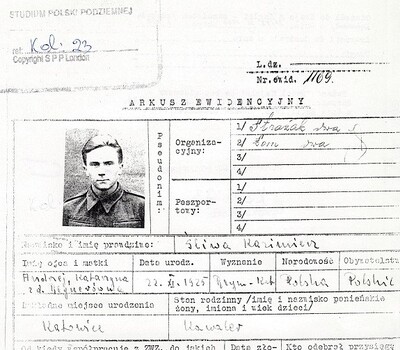 STUDIUM POLSKI PODZIEMNEJ
ref: Kol: 23
Copyright S P P London
L.dz.
Nr.ewid. 1109.
ARKUSZ EWIDENCYJNY
Pseudonim:
Organiza-
cyjny:
1/ Strażak dwa
2/ Łom dwa
3/
4/
Paszpor-
towy:
1/
2/
3/
4/
Nazwisko i imię prawdziwe: Śliwa Kazimierz
Imię ojca i matki
Data urodz.
Wyznanie
Narodowość
Obywatelstw
Andrzej, Katarzyna
z d.
22. 1925
Rzym-Kat
Polska
Polskie
Dokładne miejsce urodzenia
Stan rodzinny /imię i nazwisko panieńskie
żony, imiona i wiek dzieci/
Katowice
Kawaler
Od kiedy współpracuje z ZWZ. do jakich
Data zło-
Kto odebrał przysięgę